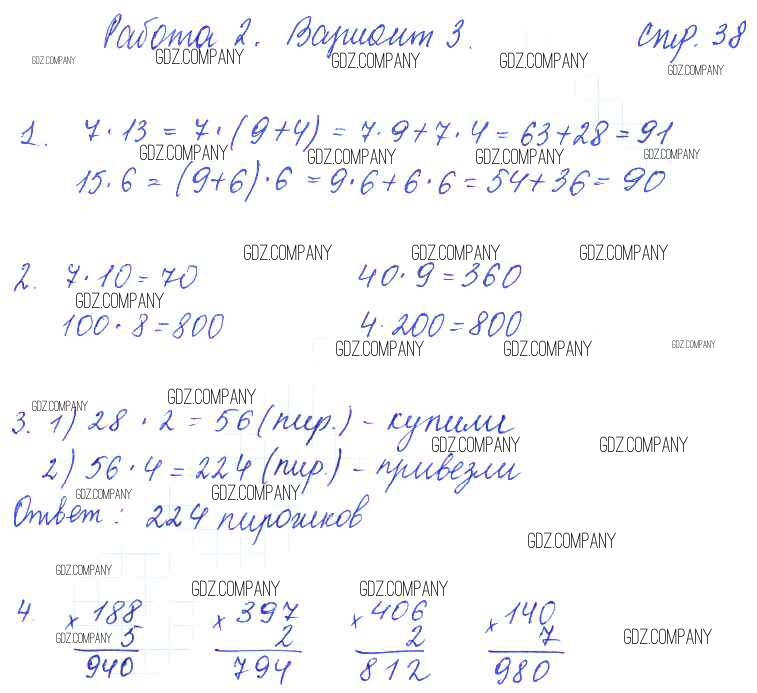 Работа 2. Вариант 3. стр. 38
GDZ.COMPANY GDZ.COMPANY GDZ.COMPANY GDZ.COMPANY GDZ.COMPANY
1. 7 · 13 = 7 · (9+4) = 7 · 9 + 7 · 4 = 63 + 28 = 91
GDZ.COMPANY GDZ.COMPANY GDZ.COMPANY GDZ.COMPANY
15 · 6 = (9+6) · 6 = 9 · 6 + 6 · 6 = 54 + 36 = 90
GDZ.COMPANY GDZ.COMPANY GDZ.COMPANY
2. 7 · 10 = 70 40 · 9 = 360
GDZ.COMPANY
100 · 8 = 800 4 · 200 = 800
GDZ.COMPANY GDZ.COMPANY GDZ.COMPANY
GDZ.COMPANY GDZ.COMPANY
3. 1) 28 · 2 = 56 (пир.) - купили
GDZ.COMPANY GDZ.COMPANY
2) 56 · 4 = 224 (пир.) - привезли
GDZ.COMPANY GDZ.COMPANY
Ответ: 224 пирожков
GDZ.COMPANY
GDZ.COMPANY GDZ.COMPANY GDZ.COMPANY
4. × 188 × 397 × 406 × 140
GDZ.COMPANY 5 2 2 7 GDZ.COMPANY
940 794 812 980